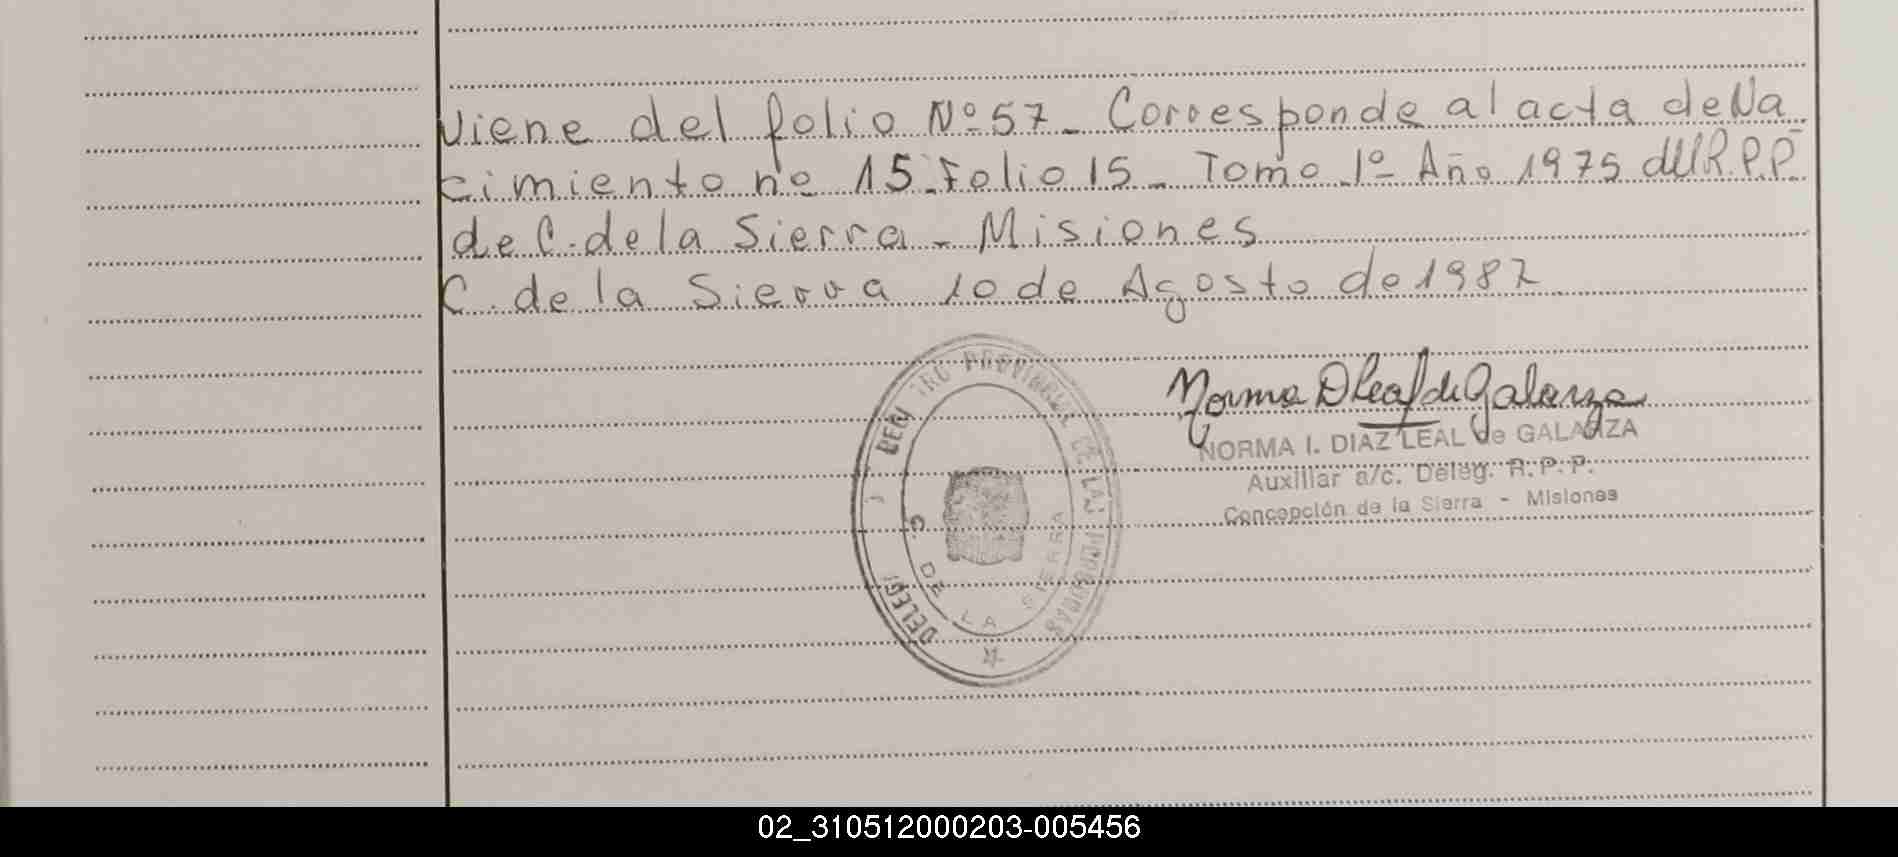 Viene del folio Nº 57_ Corresponde al acta de Na
cimiento nº 15_Folio 15_ Tomo 1º_ Año 1975 del R.P.P.
de C. de la Sierra_ Misiones
C. de la Sierra 10 de Agosto de 1987
Norma D Leal de Galarza
NORMA I. DIAZ LEAL de GALARZA
Auxiliar a/c. Deleg. R. P. P.
Concepción de la Sierra - Misiones
PROVINCIAL DE LAS PERSONAS
DELEG
C. DE LA SIERRA
02_310512000203-005456